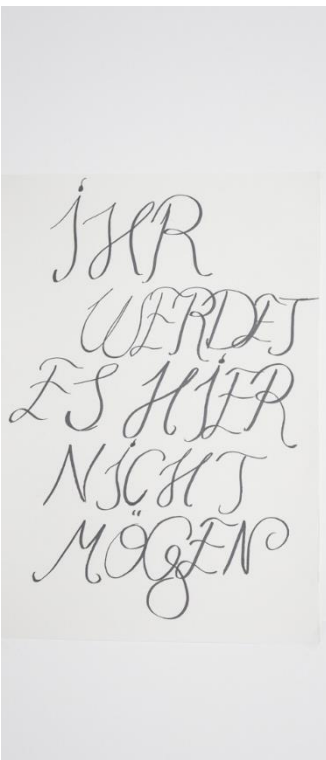 İHR
WERDET
ES HİER
NİCHT
MÖGEN